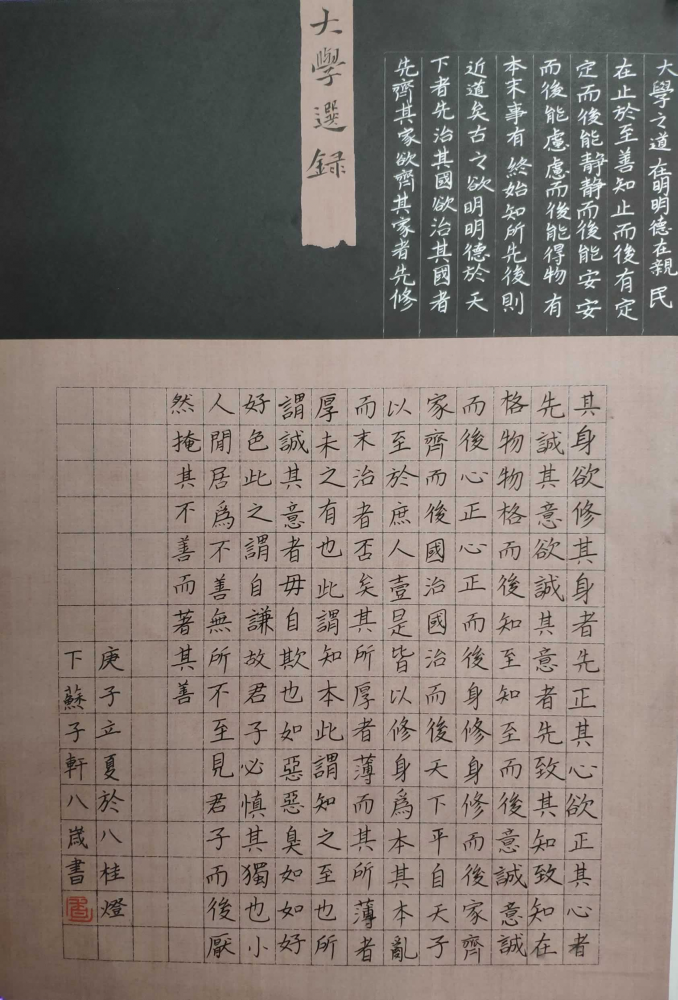 大學選録
大學之道在明明德在親民
在止於至善知止而後有定
定而後能静静而後能安安
而後能慮慮而後能得物有
本末事有終始知所先後則
近道矣古之欲明明德於天
下者先治其國欲治其國者
先齊其家欲齊其家者先修
其身欲修其身者先正其心欲正其心者
先誠其意欲誠其意者先致其知致知在
格物物格而後知至知至而後意誠意誠
而後心正心正而後身修身修而後家齊
家齊而後國治國治而後天下平自天子
以至於庶人壹是皆以修身爲本其本亂
而末治者否矣其所厚者薄而其所薄者
厚未之有也此謂知本此謂知之至也所
謂誠其意者毋自欺也如惡惡臭如如好
好色此之謂自謙故君子必慎其獨也小
人閒居爲不善無所不至見君子而後厭
然掩其不善而著其善
庚子立夏於八桂燈
下蘇子軒八歲書